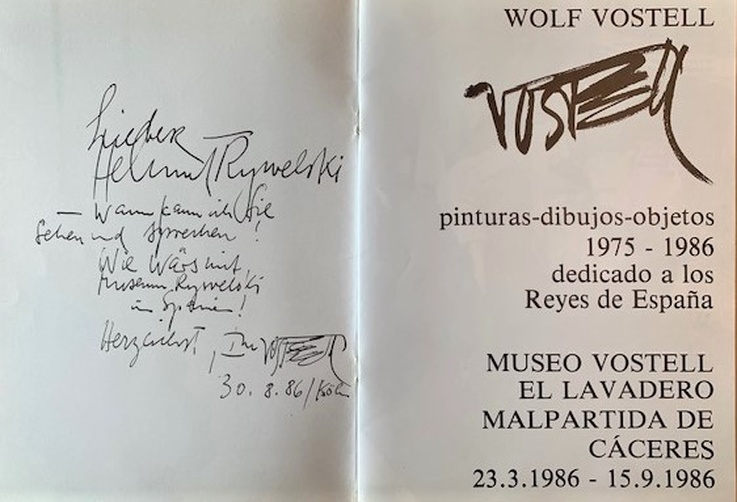 Lieber
Helmut Rywelski
– Wann kann ich Sie
sehen und sprechen!
Wie wärs mit
Museum Rywelski
in Spanien!
Herzlichst, Ihr Vostell
30.8.86/Köln
WOLF VOSTELL
VOSTELL
pinturas-dibujos-objetos
1975 - 1986
dedicado a los
Reyes de España
MUSEO VOSTELL
EL LAVADERO
MALPARTIDA DE
CÁCERES
23.3.1986 - 15.9.1986